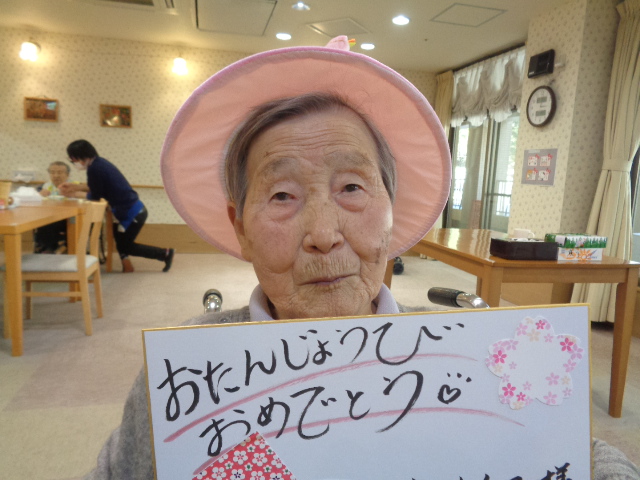 おたんじょうび
おめでとう♡
様